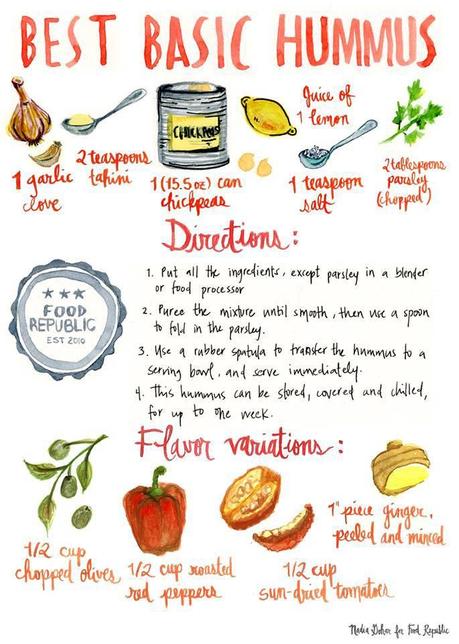 BEST BASIC HUMMUS
1 garlic
clove
2 teaspoons
tahini
CHICKPEAS
1 (15.5 oz) can
chickpeas
Juice of
1 lemon
1 teaspoon
salt
2 tablespoons
parsley
(chopped)
Directions:
FOOD
REPUBLIC
EST 2010
1. Put all the ingredients, except parsley in a blender
or food processor
2. Puree the mixture until smooth, then use a spoon
to fold in the parsley.
3. Use a rubber spatula to transfer the hummus to a
serving bowl, and serve immediately.
4. This hummus can be stored, covered and chilled,
for up to one week.
Flavor variations:
1/2 cup
chopped olives
1/2 cup roasted
red peppers
1/2 cup
sun-dried tomatoes
1" piece ginger,
peeled and minced
Nadia for Food Republic